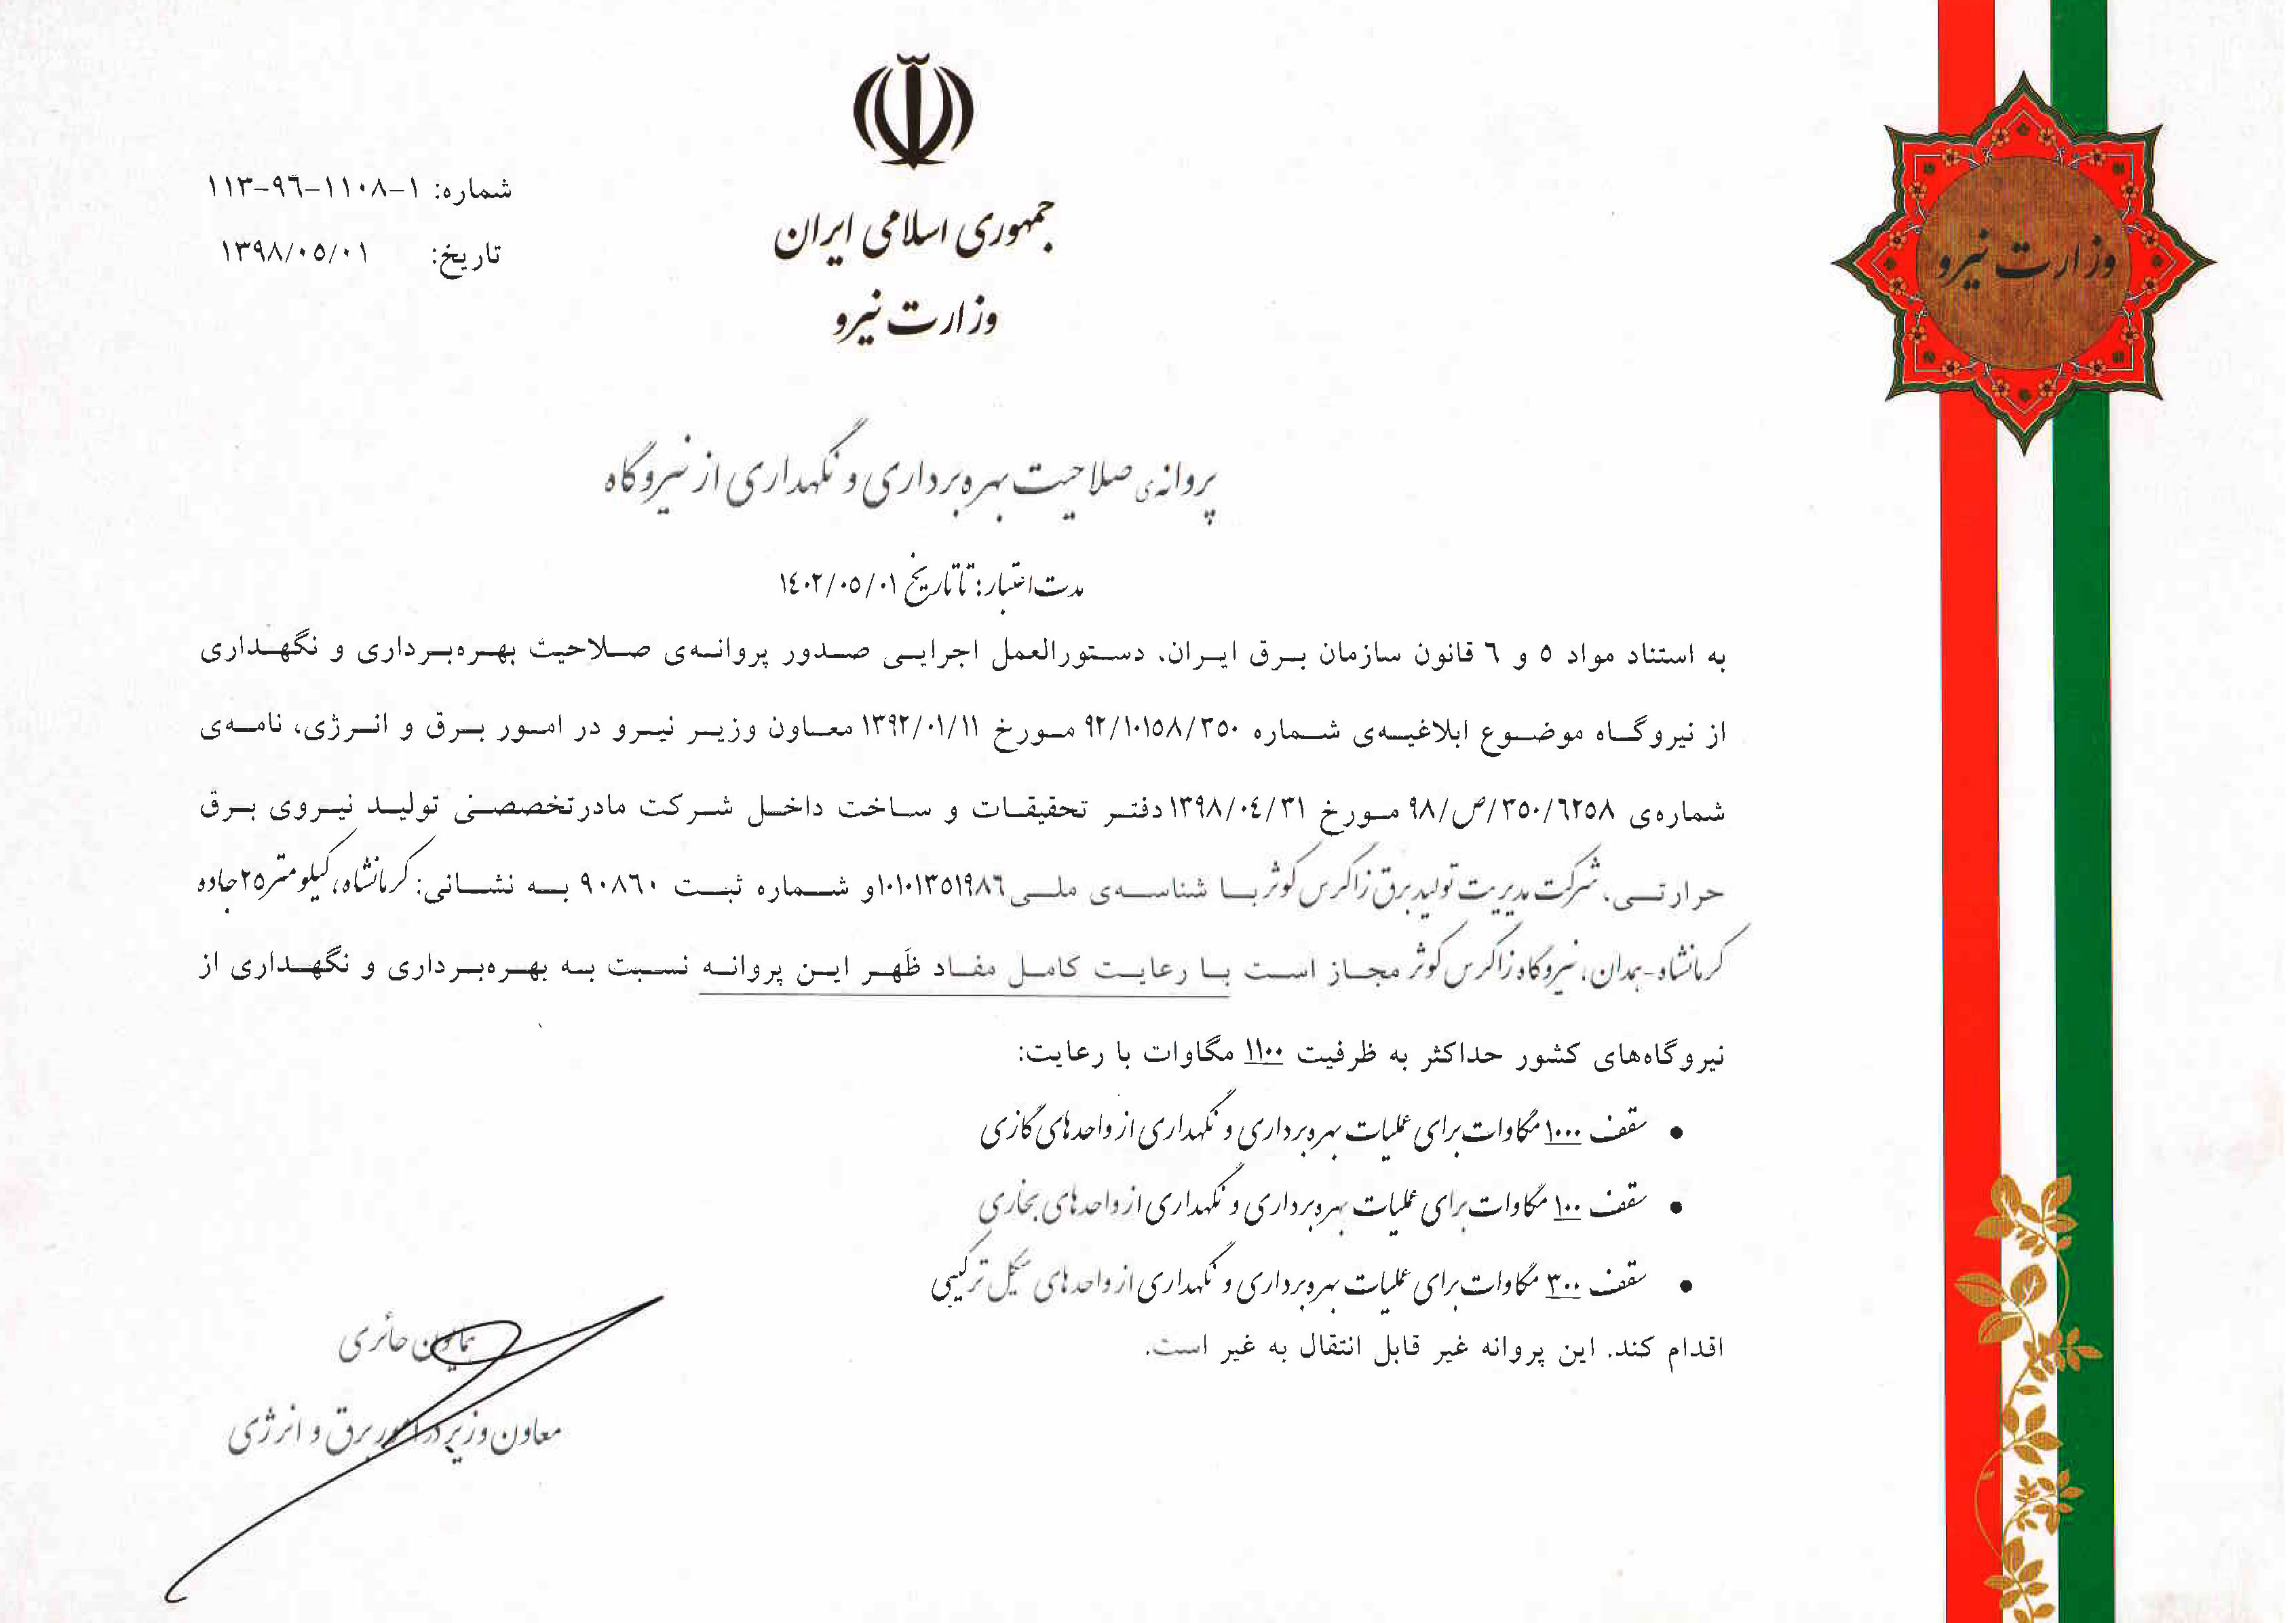 جمهوری اسلامی ایران
وزارت نیرو
شماره: ۱-۱۱۰۸-۹۶-۱۱۳
تاریخ: ۱۳۹۸/۰۵/۰۱
وزارت نیرو
پروانه‌ی صلاحیت بهره‌برداری و نگهداری از نیروگاه
مدت اعتبار: تا تاریخ ۱۴۰۲/۰۵/۰۱
به استناد مواد ۵ و ۶ قانون سازمان برق ایران، دستورالعمل اجرایی صدور پروانه‌ی صلاحیت بهره‌برداری و نگهداری
از نیروگاه موضوع ابلاغیه‌ی شماره ۹۲/۱۰۱۵۸/۳۵۰ مورخ ۱۳۹۲/۰۱/۱۱ معاون وزیر نیرو در امور برق و انرژی، نامه‌ی
شماره‌ی ۹۸/ص/۳۵۰/۶۲۵۸ مورخ ۱۳۹۸/۰۴/۳۱ دفتر تحقیقات و ساخت داخل شرکت مادرتخصصی تولید نیروی برق
حرارتی، شرکت مدیریت تولید برق زاگرس کوثر با شناسه‌ی ملی ۱۰۱۰۱۳۵۱۹۸۶ و شماره ثبت ۹۰۸۶۰ به نشانی: کرمانشاه، کیلومتر ۲۵ جاده
کرمانشاه-همدان، نیروگاه زاگرس کوثر مجاز است با رعایت کامل مفاد ظَهر این پروانه نسبت به بهره‌برداری و نگهداری از
نیروگاه‌های کشور حداکثر به ظرفیت ۱۱۰۰ مگاوات با رعایت:
• سقف ۱۰۰۰ مگاوات برای عملیات بهره‌برداری و نگهداری از واحدهای گازی
• سقف ۱۰۰ مگاوات برای عملیات بهره‌برداری و نگهداری از واحدهای بخاری
• سقف ۳۰۰ مگاوات برای عملیات بهره‌برداری و نگهداری از واحدهای سیکل ترکیبی
اقدام کند. این پروانه غیر قابل انتقال به غیر است.
همایون حائری
معاون وزیر در امور برق و انرژی